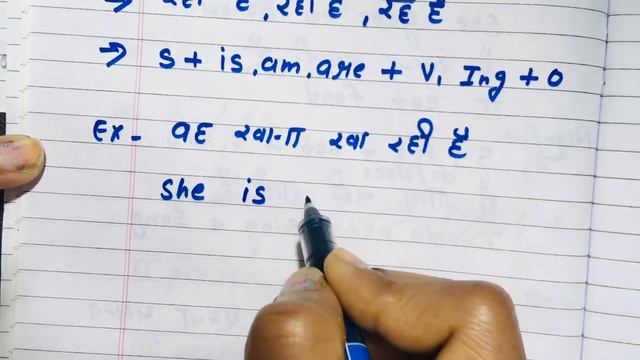 → रहा है, रही है, रहे हैं
→ S + is, am, are + V, Ing + O
Ex- वह खाना खा रही है
She is